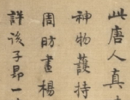 此唐人真
神物護持
周昉畫楊
許後子昂一